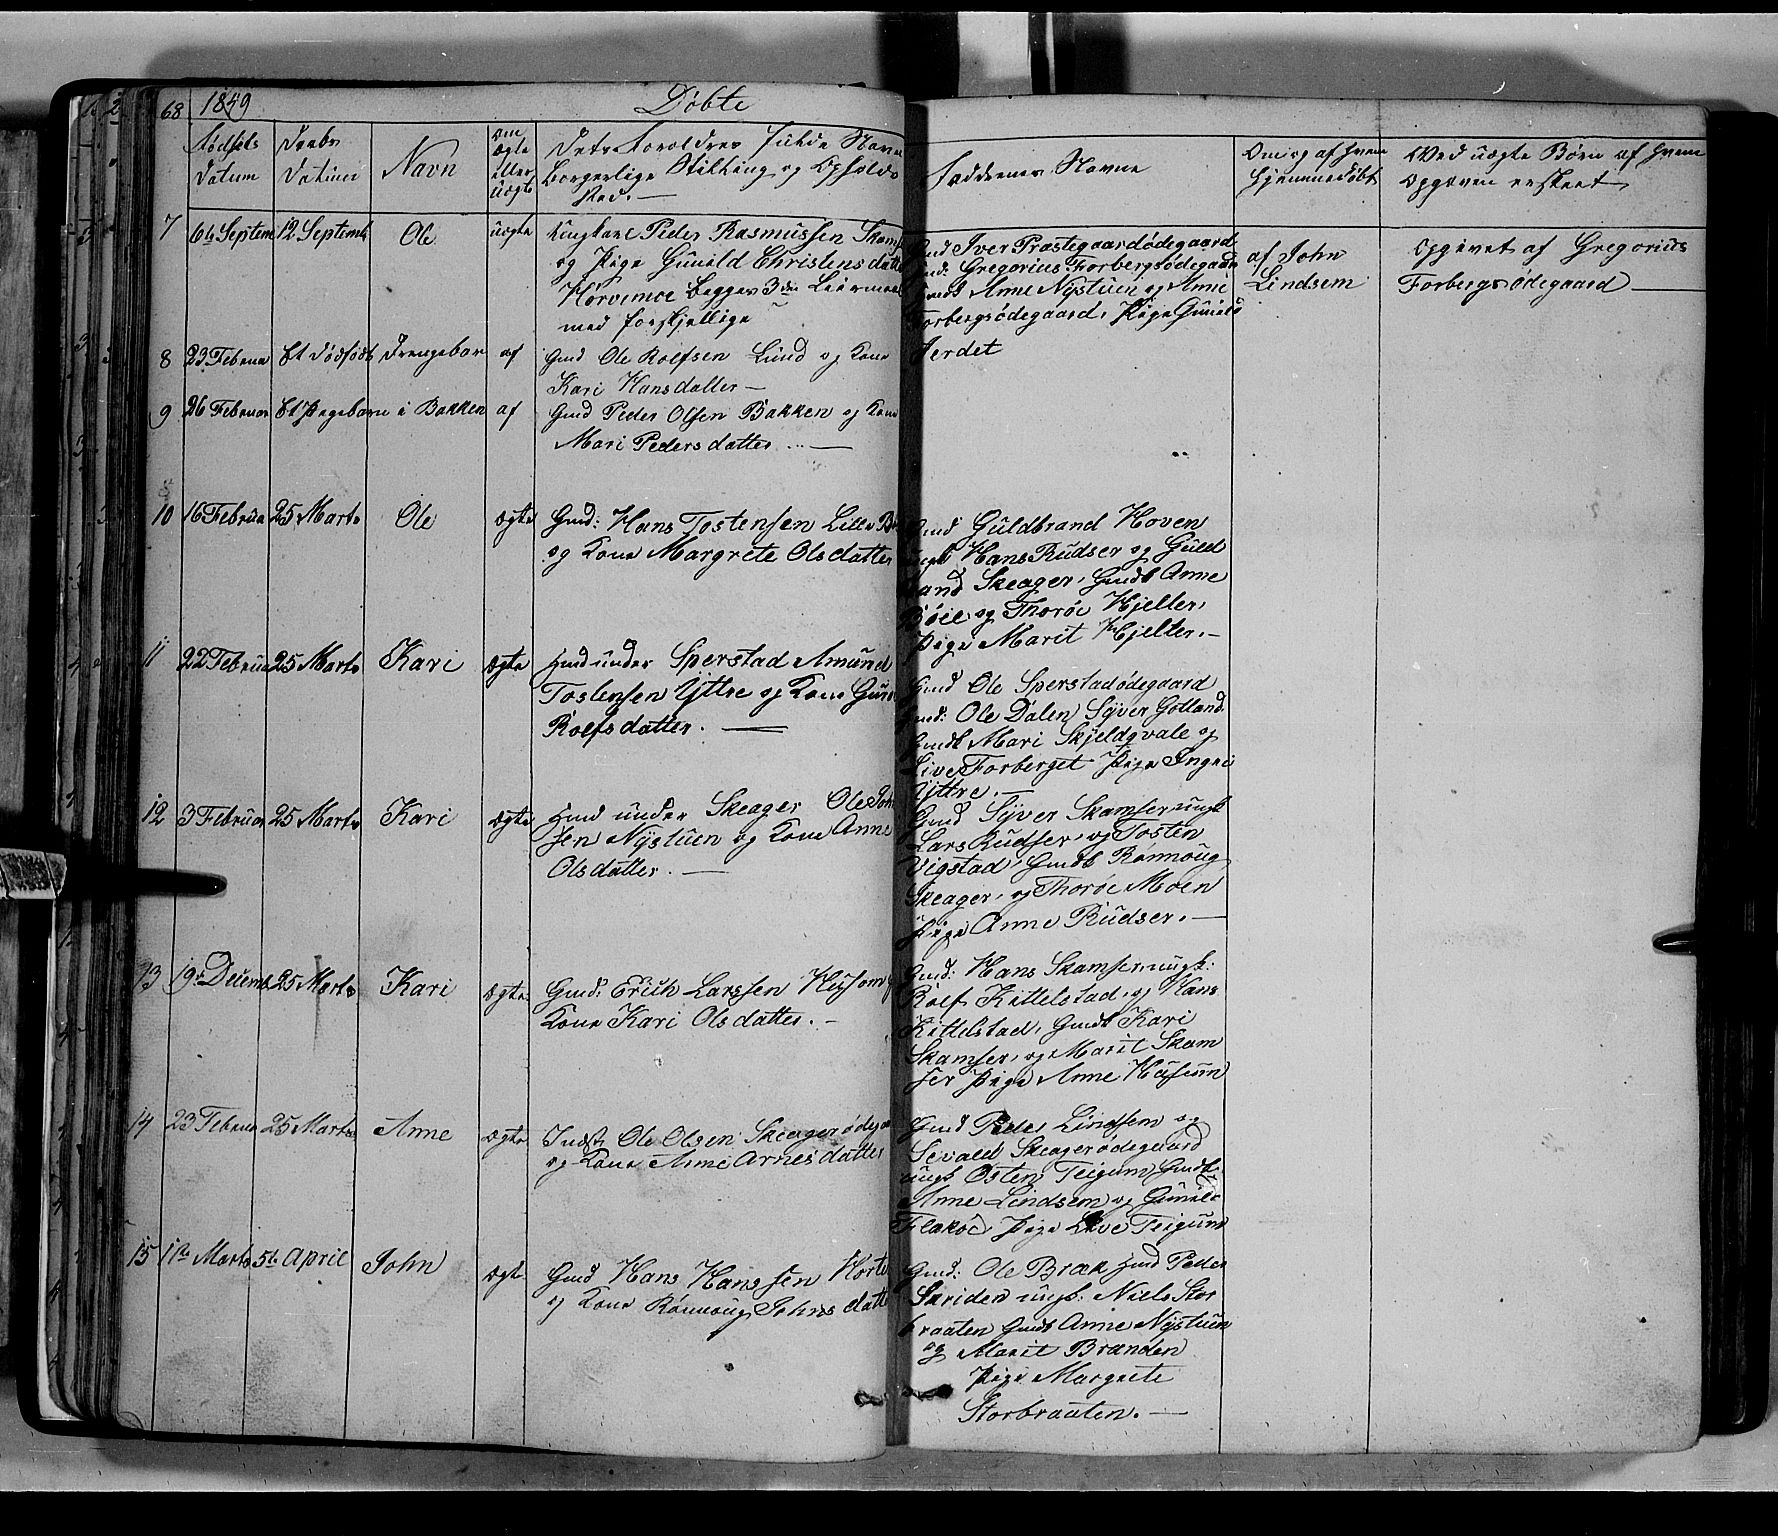 68 1849 Døbte
Fødsels Datum
Daabs Datum
Navn
Om ægte eller uægte
Børgerlige Stilling og Opholds
Sted. —
Faddernes Navne
Om og af hvem hjemmedøbt
Ved uægte Børn af hvem
Opgaven er skeet
7 6te Septem 12 Septemb Ole uægte Ungkarl Peder Rasmussen
og Pige Gunild Christensdatter
begges 3die Leiermaal
med forskjellige
Gmd Iver Præstegaardødegaard
Gmd: Gregorius Forbergsødegaard
Gmdk Anne Nystuen og Anne
Forbergsødegaard, Pige Gunild
Jerdet
af John
Lindsem
Opgivet af Gregorius
Forbergsødegaard
8 23 Februar Et dødfødt Drengebarn af Gmd Ole Rolfsen Lund og Kone
Kari Hansdatter —
9 26 Februar Et Pigebarn i Bakken af Gmd Peder Olsen Bakken og Kone
Mari Pedersdatter —
10 16 Februa 25 Marts Ole ægte Gmd: Hans Tostensen Lille
og Kone Margrete Olsdatter
Gmd Guldbrand Hoven
ungk Hans Rudser og Guld
brand Skeager, Gmdk Anne
Bøie og Thorøe Hjelter,
Pige Marit Hjelter. —
11 22 Februa 25 Marts Kari ægte Hmd under Sperstad Amund
Tostensen Yttre og Kone
Rolfsdatter. —
Gmd Ole Sperstadødegaard
Gmd: Ole Dalen, Syver Gotland
Gmdk Mari Skjeldqvale og
Live Forberget Pige Ingri
Yttre. —
12 3 Februar 25 Marts Kari ægte Hmd under Skeager Ole John
sen Nystuen og Kone Anne
Olsdatter. —
Gmd Syver Skamser ungk
Lars Rudser, og Tosten
Vigstad, Gmdk Rønnoug
Skeager, og Thorøe Moen
Pige Anne Rudser. —
13 19 Decemb 25 Marts Kari ægte Gmd: Erich Larssen Husom og
Kone Kari Olsdatter. —
Gmd: Hans Skamser, ungk:
Rolf Kittelstad, og Hans
Kittelstad, Gmdk Kari
Skamser, og Marit Skam
ser Pige Anne Husum
14 23 Februa 25 Marts Anne ægte Indst: Ole Olsen Skeagerødega
og Kone Anne Arnesdatter
Gmd Peder Lindsem og
Sevald Skeagerødegaard
ungk Osten Teigum, Gmdk
Anne Lindsem og Gunild
Flakøe, Pige Live Teigum
15 11te Marts 5te April John ægte Gmd Hans Hanssen Horte
og Kone Rønnoug Johnsdatte
Gmd: Ole Bræk Hmd Peder
ungk. Niels Stor
braaten Gmdk Anne Nystuen
og Marit Brænden
Pige Margrete
Storbraaten. —